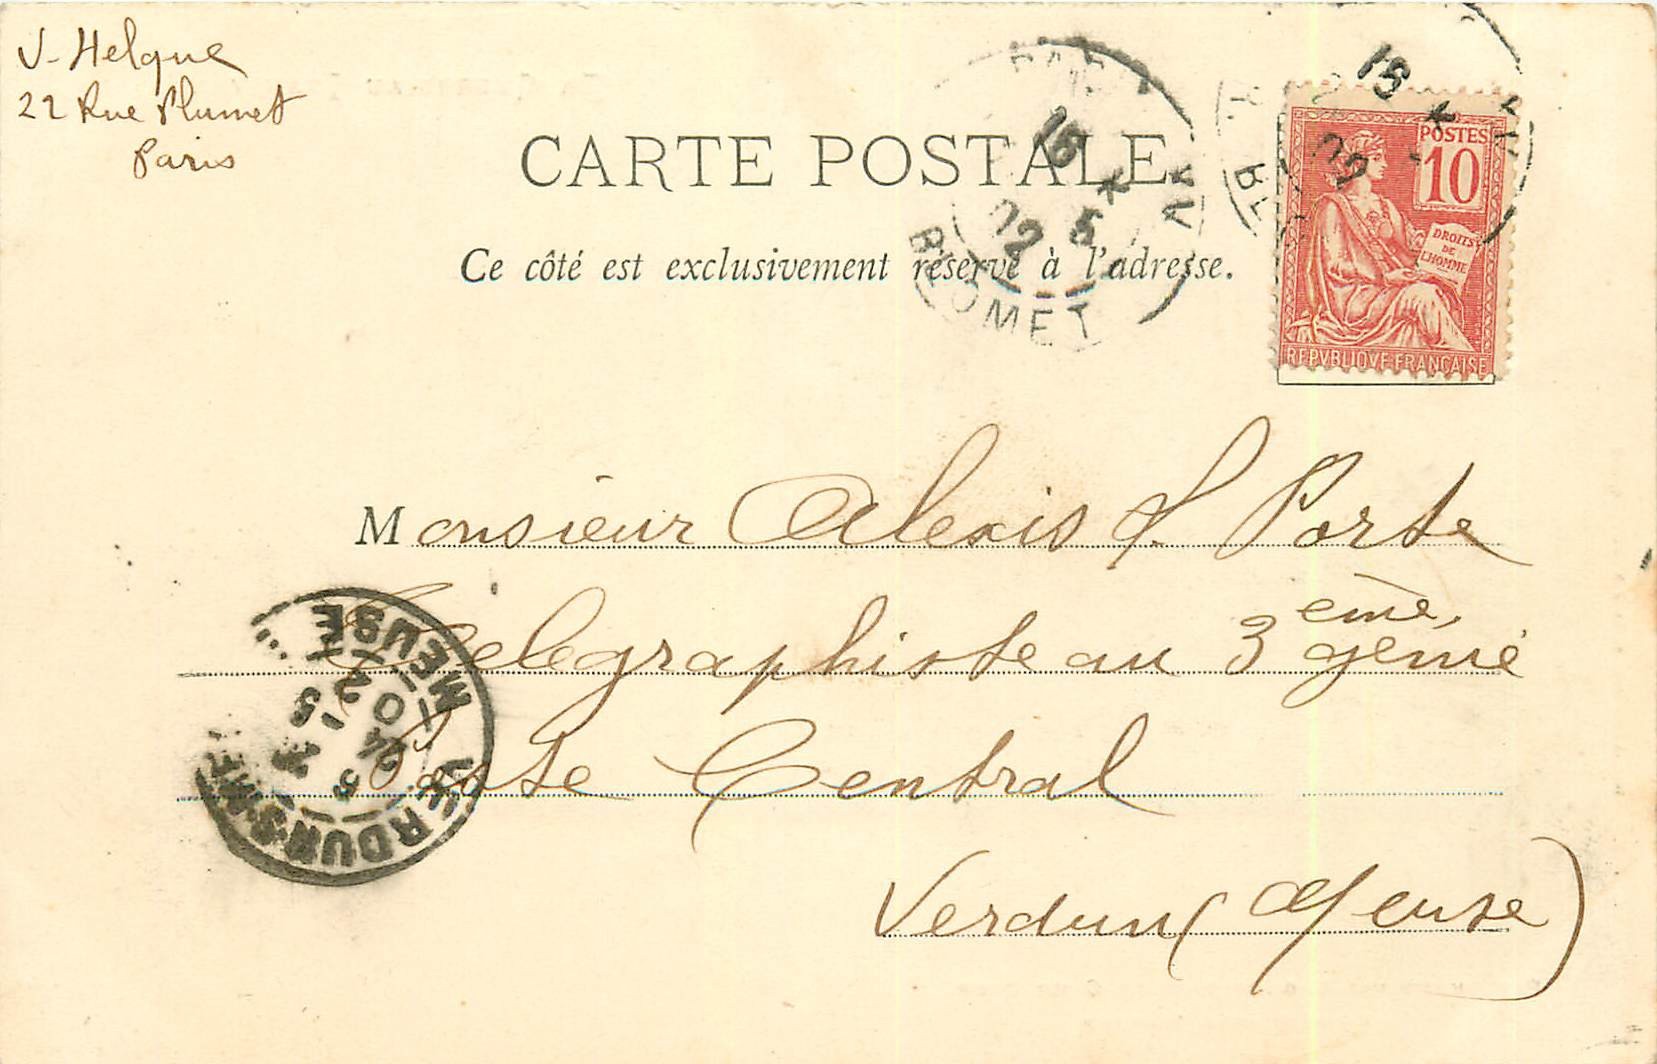 V. Helque
22 Rue Plumet
Paris
CARTE POSTALE
Ce côté est exclusivement réservé à l'adresse.
PARIS XV
15 * 5
02
BLOMET
15 *
02
POSTES
10
DROITS
DE
L'HOMME
REPVBLIQVE FRANÇAISE
Monsieur Alexis f. Porte
Télégraphiste au 3eme génie
Poste Central
Verdun (Meuse)
VERDUN-S-MEUSE
MEUSE